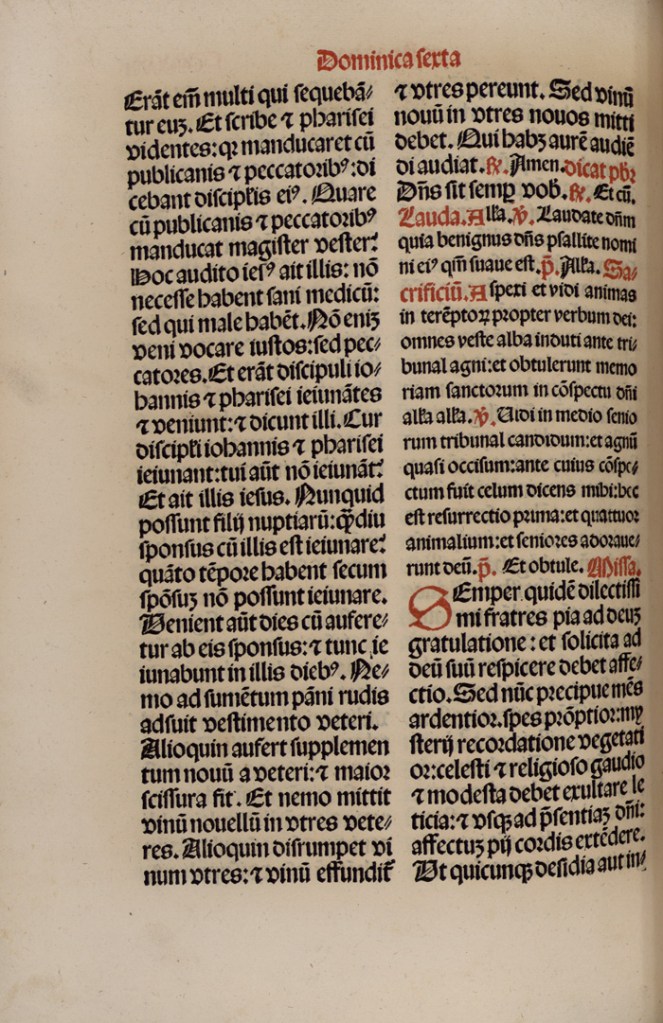 Dominica sexta
Erãt em̃ multi qui sequebã⸗
tur euʒ. Et scribe ⁊ pharisei
videntes: qꝛ manducaret cũ
publicanis ⁊ peccatoribꝰ: di
cebant discipľis eiꝰ. Quare
cũ publicanis ⁊ peccatoribꝰ
manducat magister vester?
Hoc audito iesꝰ ait illis: nõ
necesse habent sani medicũ:
sed qui male habẽt. Nõ eniʒ
veni vocare iustos: sed pec⸗
catores. Et erãt discipuli io⸗
hannis ⁊ pharisei ieiunãtes
⁊ veniunt: ⁊ dicunt illi. Cur
discipľi iohannis ⁊ pharisei
ieiunant: tui aũt nõ ieiunãt?
Et ait illis iesus. Nunquid
possunt filij nuptiarũ: ꝙ̃diu
sponsus cũ illis est ieiunare?
quãto tẽpore habent secum
spõsuʒ nõ possunt ieiunare.
Venient aũt dies cũ aufere⸗
tur ab eis sponsus: ⁊ tunc ie
iunabunt in illis diebꝰ. Ne⸗
mo ad sumẽtum pãni rudis
adsuit vestimento veteri.
Alioquin aufert supplemen
tum nouũ a veteri: ⁊ maior
scissura fit. Et nemo mittit
vinũ nouellũ in vtres vete⸗
res. Alioquin disrumpet vi
num vtres: ⁊ vinũ effundit̃
⁊ vtres pereunt. Sed vinũ
nouũ in vtres nouos mitti
debet. Qui habʒ aurẽ audiẽ
di audiat. ℟. Amen. dicat pb̃r
Dñs sit semꝑ vob̃. ℟. Et cũ.
Lauda. Alľa. ℣. Laudate dñm
quia benignus dñs psallite nomi
ni eiꝰ qm̃ suaue est. p̃. Alľa. Sa⸗
crificiũ. Aspexi et vidi animas
in terẽptoꝝ propter verbum dei:
omnes veste alba induti ante tri⸗
bunal agni: et obtulerunt memo
riam sanctorum in cõspectu dñi
alľa alľa. ℣. Uidi in medio senio
rum tribunal candidum: et agnũ
quasi occisum: ante cuius cõspe⸗
ctum fuit celum dicens mihi: hec
est resurrectio prima: et quattuor
animalium: et seniores adoraue⸗
runt deũ. p̃. Et obtule. Missa.
SEmper quidẽ dilectissi
mi fratres pia ad deuʒ
gratulatione: et solicita ad
deũ suũ respicere debet affe⸗
ctio. Sed nũc precipue mẽs
ardentior. spes prõptior: my
sterij recordatione vegetati
or: celesti ⁊ religioso gaudio
⁊ modesta debet exultare le
ticia: ⁊ vsqꝫ ad p̃sentiaʒ dñi:
affectuʒ pij cordis extẽdere.
Ut quicunqꝫ desidia aut in⸗